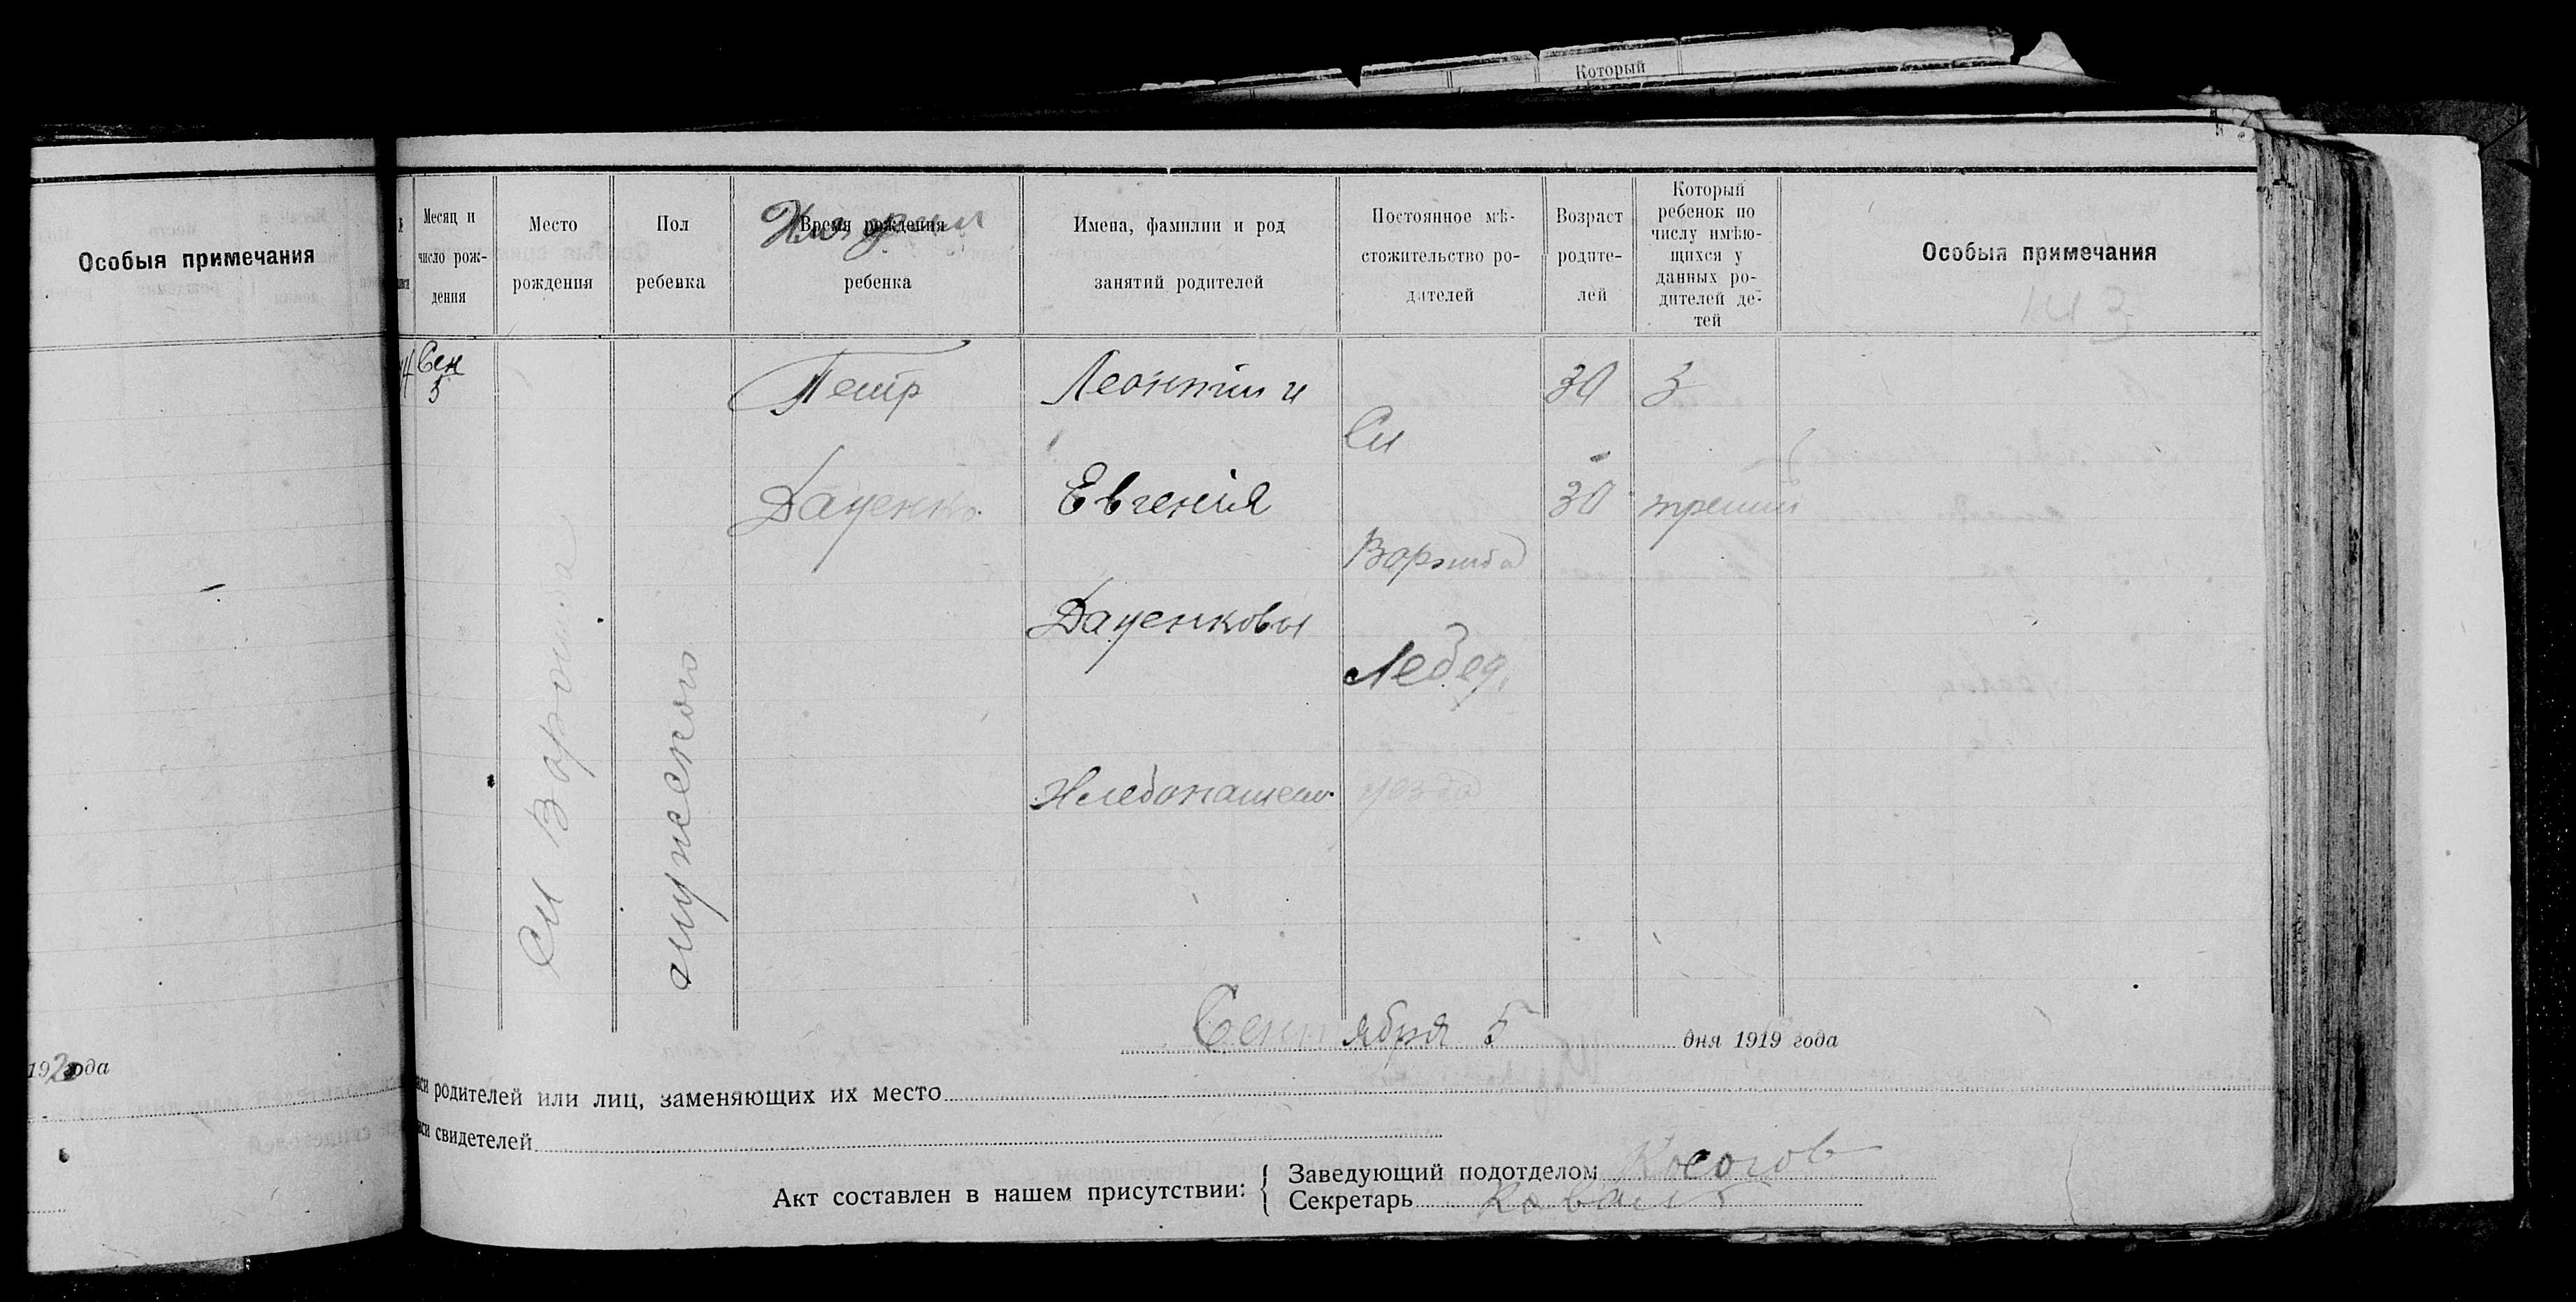 Который
Особыя примечания
Месяц и число рож-дения
Место рождения
Пол ребенка
Время рождения ребенка
Имена, фамилии и род занятий родителей
Постоянное мѣ-стожительство ро-дителей
Возраст родите-лей
Который ребенок по числу имѣю-щихся у данных ро-дителей де-тей
Особыя примечания
143
Сен
5
Сл Ворожба
мужеского
Петр
Даценко
Леонтии и
Евгения
Даценковы
Хлебопашест
Сл
Ворожба
Лебед.
уезда
30
30
3
третий
Сентября 5 дня 1919 года
192 года
родителей или лиц, заменяющих их место
свидетелей
Акт составлен в нашем присутствии:
Заведующий подотделом Косогов
Секретарь